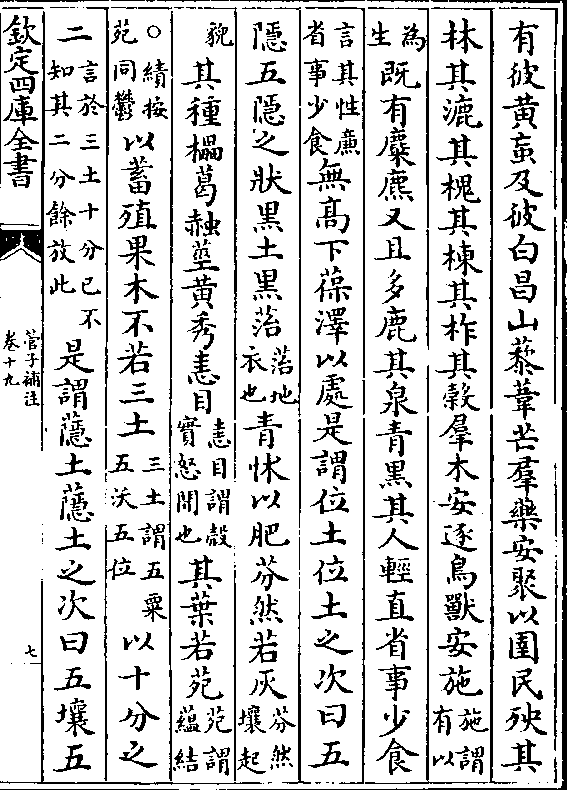 有彼黃䖟及彼白昌山藜葦芒羣藥安聚以圉民殃其
林其漉其槐其楝其柞其榖羣木安逐鳥獸安施施謂有以
為生既有麋麃又且多鹿其泉青黑其人輕直省事少食
言其性廉省事少食無髙下葆澤以處是謂位土位土之次曰五
隱五隱之狀黑土黑菭菭地衣也青怵以肥芬然若灰芬然壤起
貌其種櫑葛赨莖黃秀恚目恚目謂榖實怒開也其葉若苑苑謂蘊結
○績按苑同鬱以蓄殖果木不若三土三土謂五粟五沃五位以十分之
二言於三土十分已不知其二分餘放此是謂蘟土蘟土之次曰五壤五
欽定四庫全書
管子補注
卷十九
七